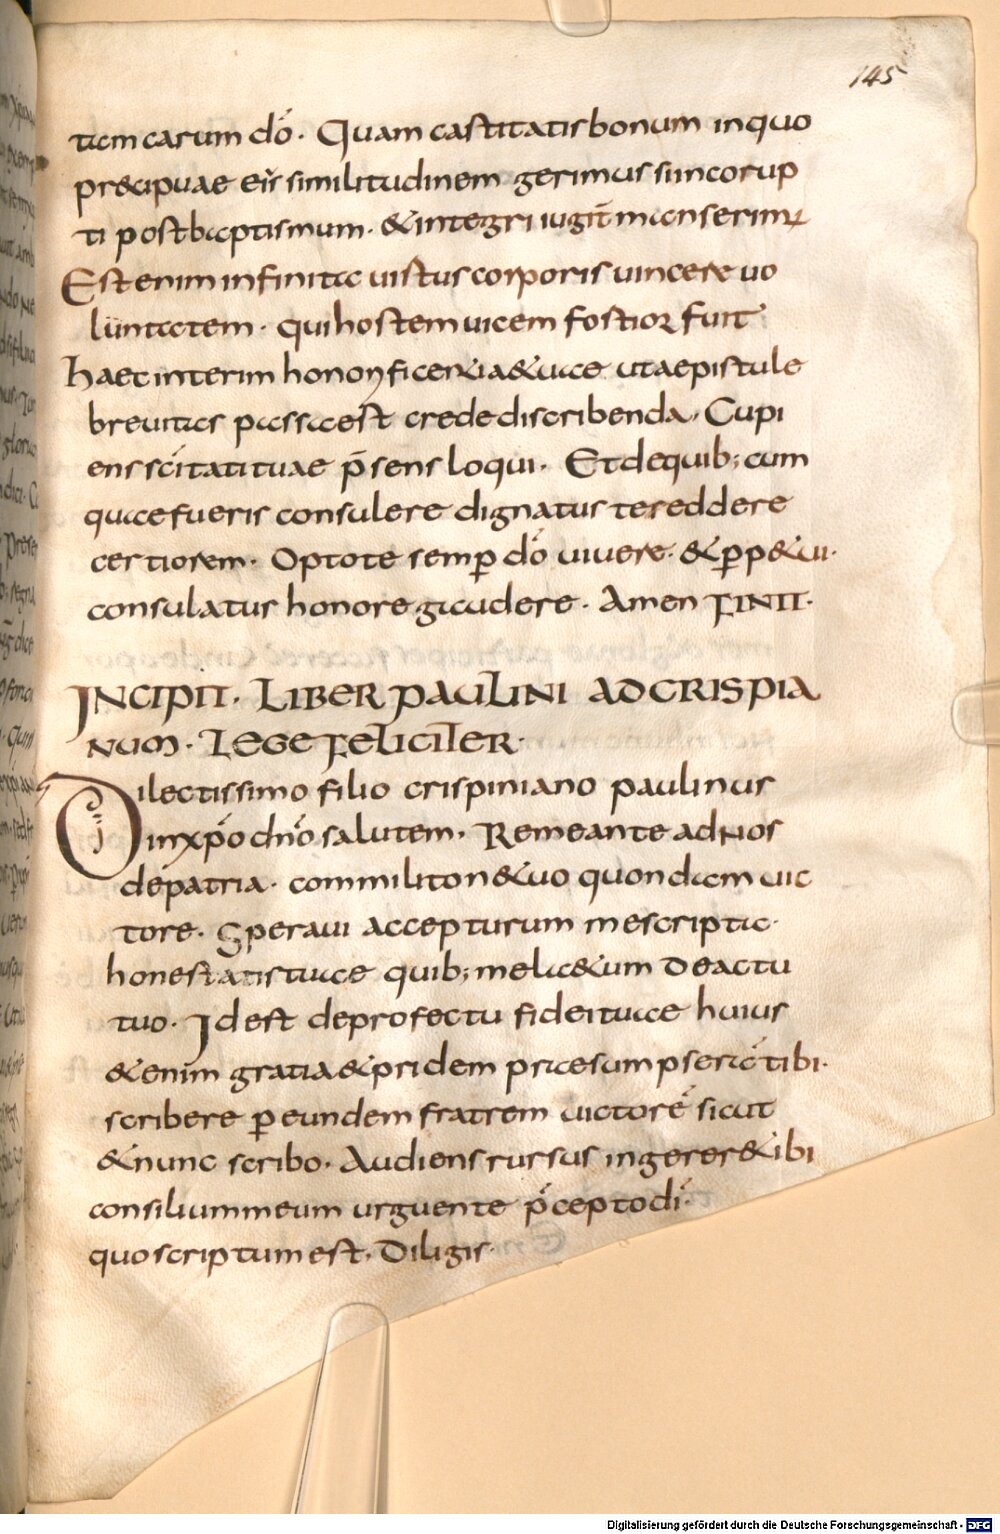 145
tiam earum dō. Quam castitatis bonum in quo
praecipuae eiꝰ similitudinem gerimus si incorup
ti post baptismum. & integri iugit̄ manserimꝰ
Est enim infinita uistus corporis uincere uo
luntatem. qui hostem uicem fostior fuit
haec interim honorificentia & uiae uta epistule
breuitas passa est crede discribenda. Cupi
ens sc̄itati tuae p̄sens loqui. Et de quib; cum
quae fueris consulere dignatus te reddere
certiorem. Optote semꝑ dō uiuere. & ꝑp&ui.
consulatus honore gaudere. Amen FINIT.
INCIPIT. LIBER PAULINI AD CRISPIA
NUM. LEGE FELICITER.
Dilectissimo filio crispiniano paulinus
in xp̄o dn̄o salutem. Remeante ad nos
de patria. commiliton& uo quondam uic
tore. Speraui accepturum me scripta.
honestatis tuae quib; mela&um de actu
tuo. Id est de profectu fidei tuae huius
&enim gratia & pridem praesumpseratibi.
scribere ꝑ eundem fratrem uictorē sicut
& nunc scribo. Audiens rursus ingerer&ibi
consilium meum urguente p̄cepto dī.
quo scriptum est. Diligis.
Digitalisierung gefördert durch die Deutsche Forschungsgemeinschaft - DFG